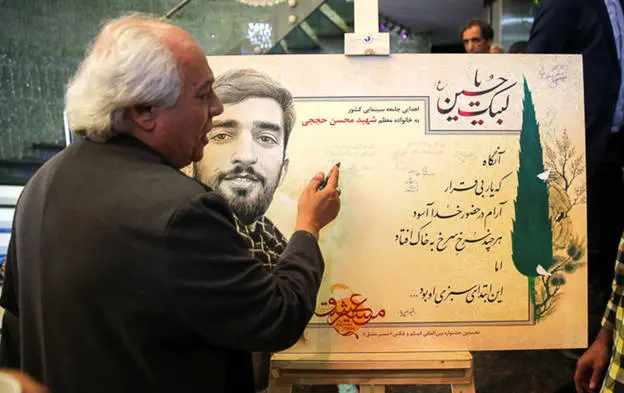 لبیک یا حسین ع
اهدایی جامعه سینمایی کشور
به خانواده معظم شهید محسن حججی
آنگاه
که یار بی قرار
آرام در حضور خدا آسود
هر چند سرخ سرخ به خاک افتاد
اما
این ابتدای سبزی او بود...
مسیر عشق
نخستین جشنواره بین‌المللی فیلم و عکس «مسیر عشق»